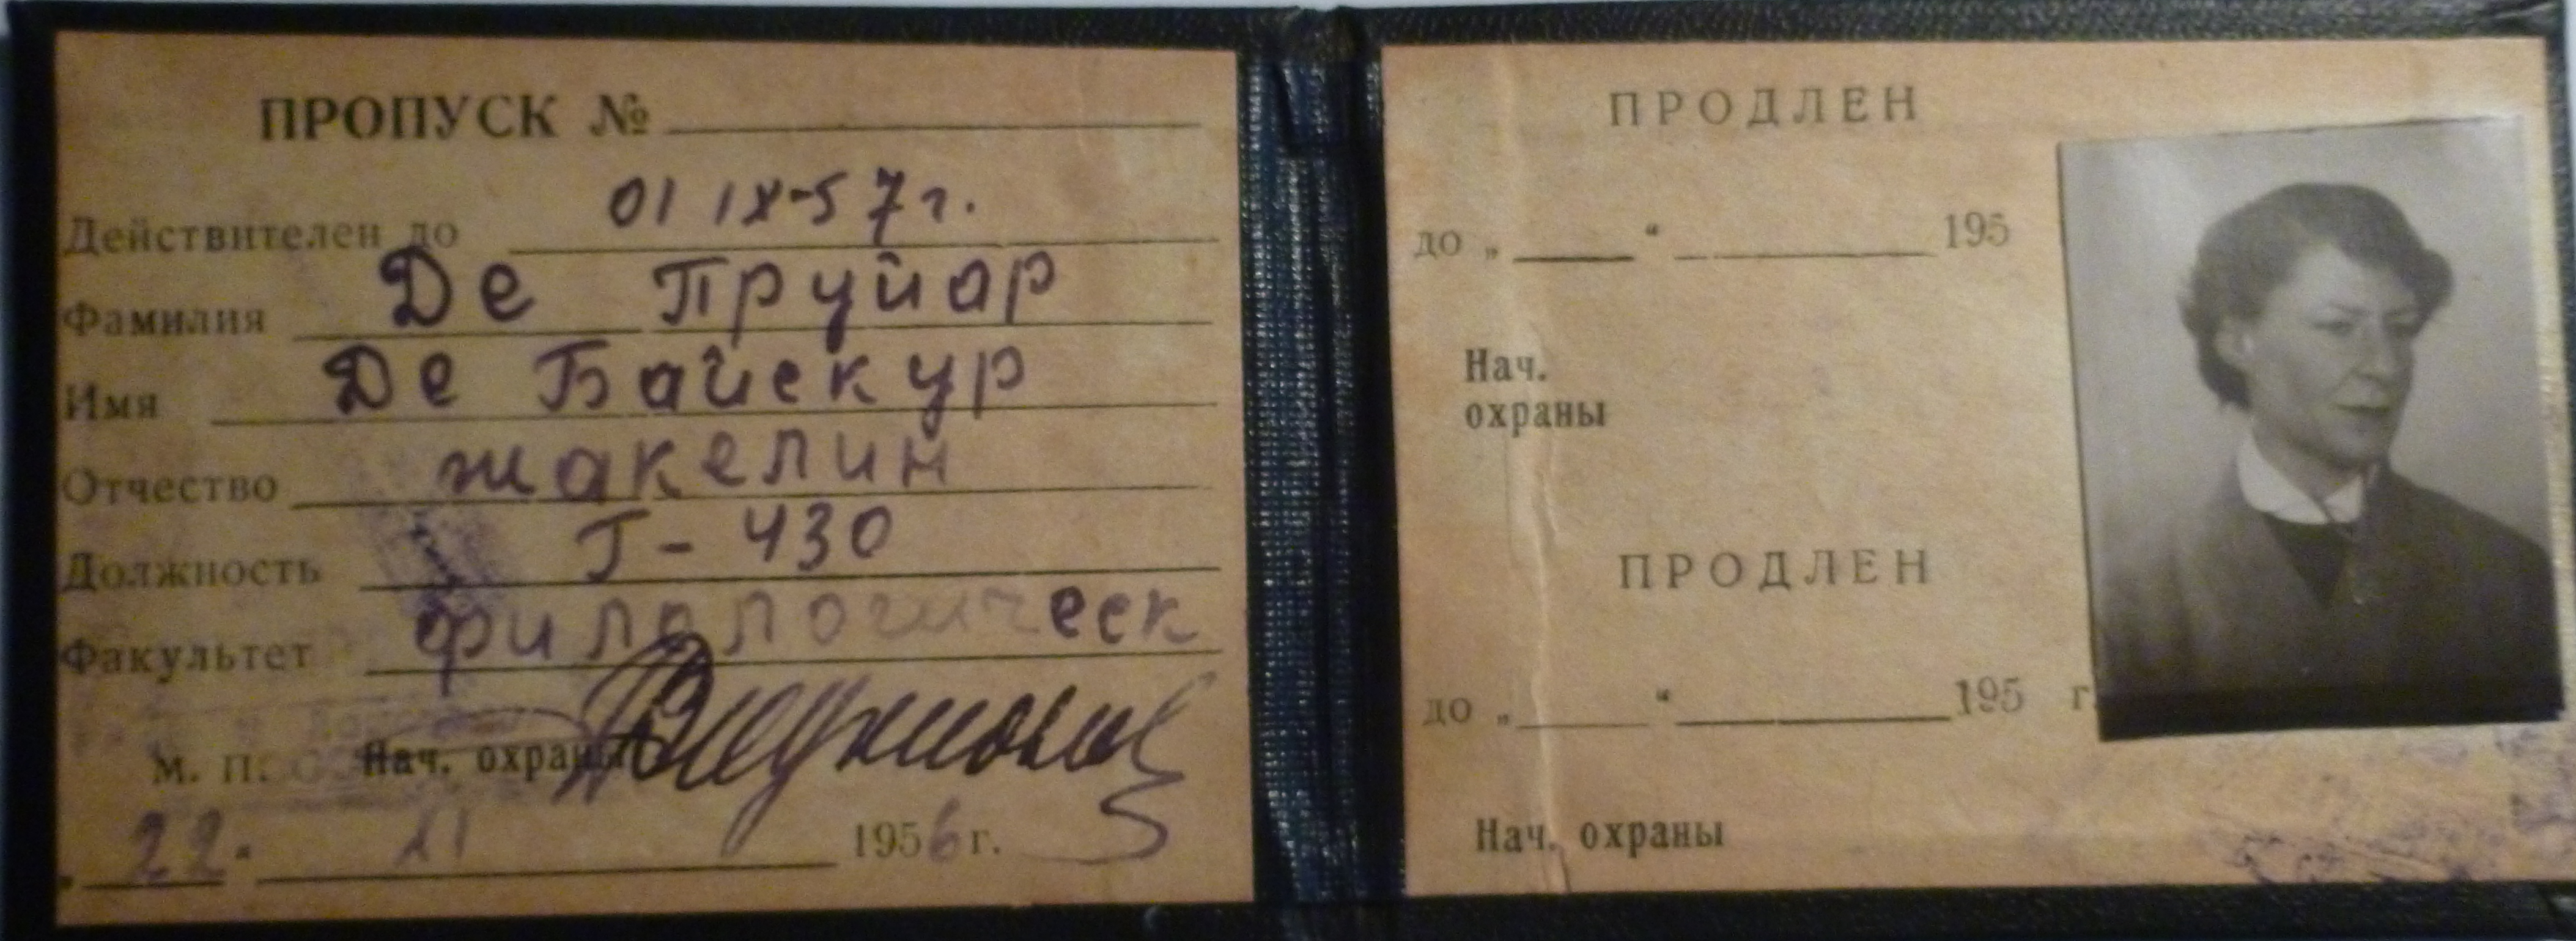 ПРОПУСК №
Действителен до 01 IX-57 г.
Фамилия Де Пруйар
Имя Де Байекур
Отчество жакелин
Должность Г-430
Факультет филологическ
М. П. Нач. охраны
22 " 11 1956 г.
ПРОДЛЕН
до „ “ 195
Нач.
охраны
ПРОДЛЕН
до „ “ 195 г.
Нач. охраны